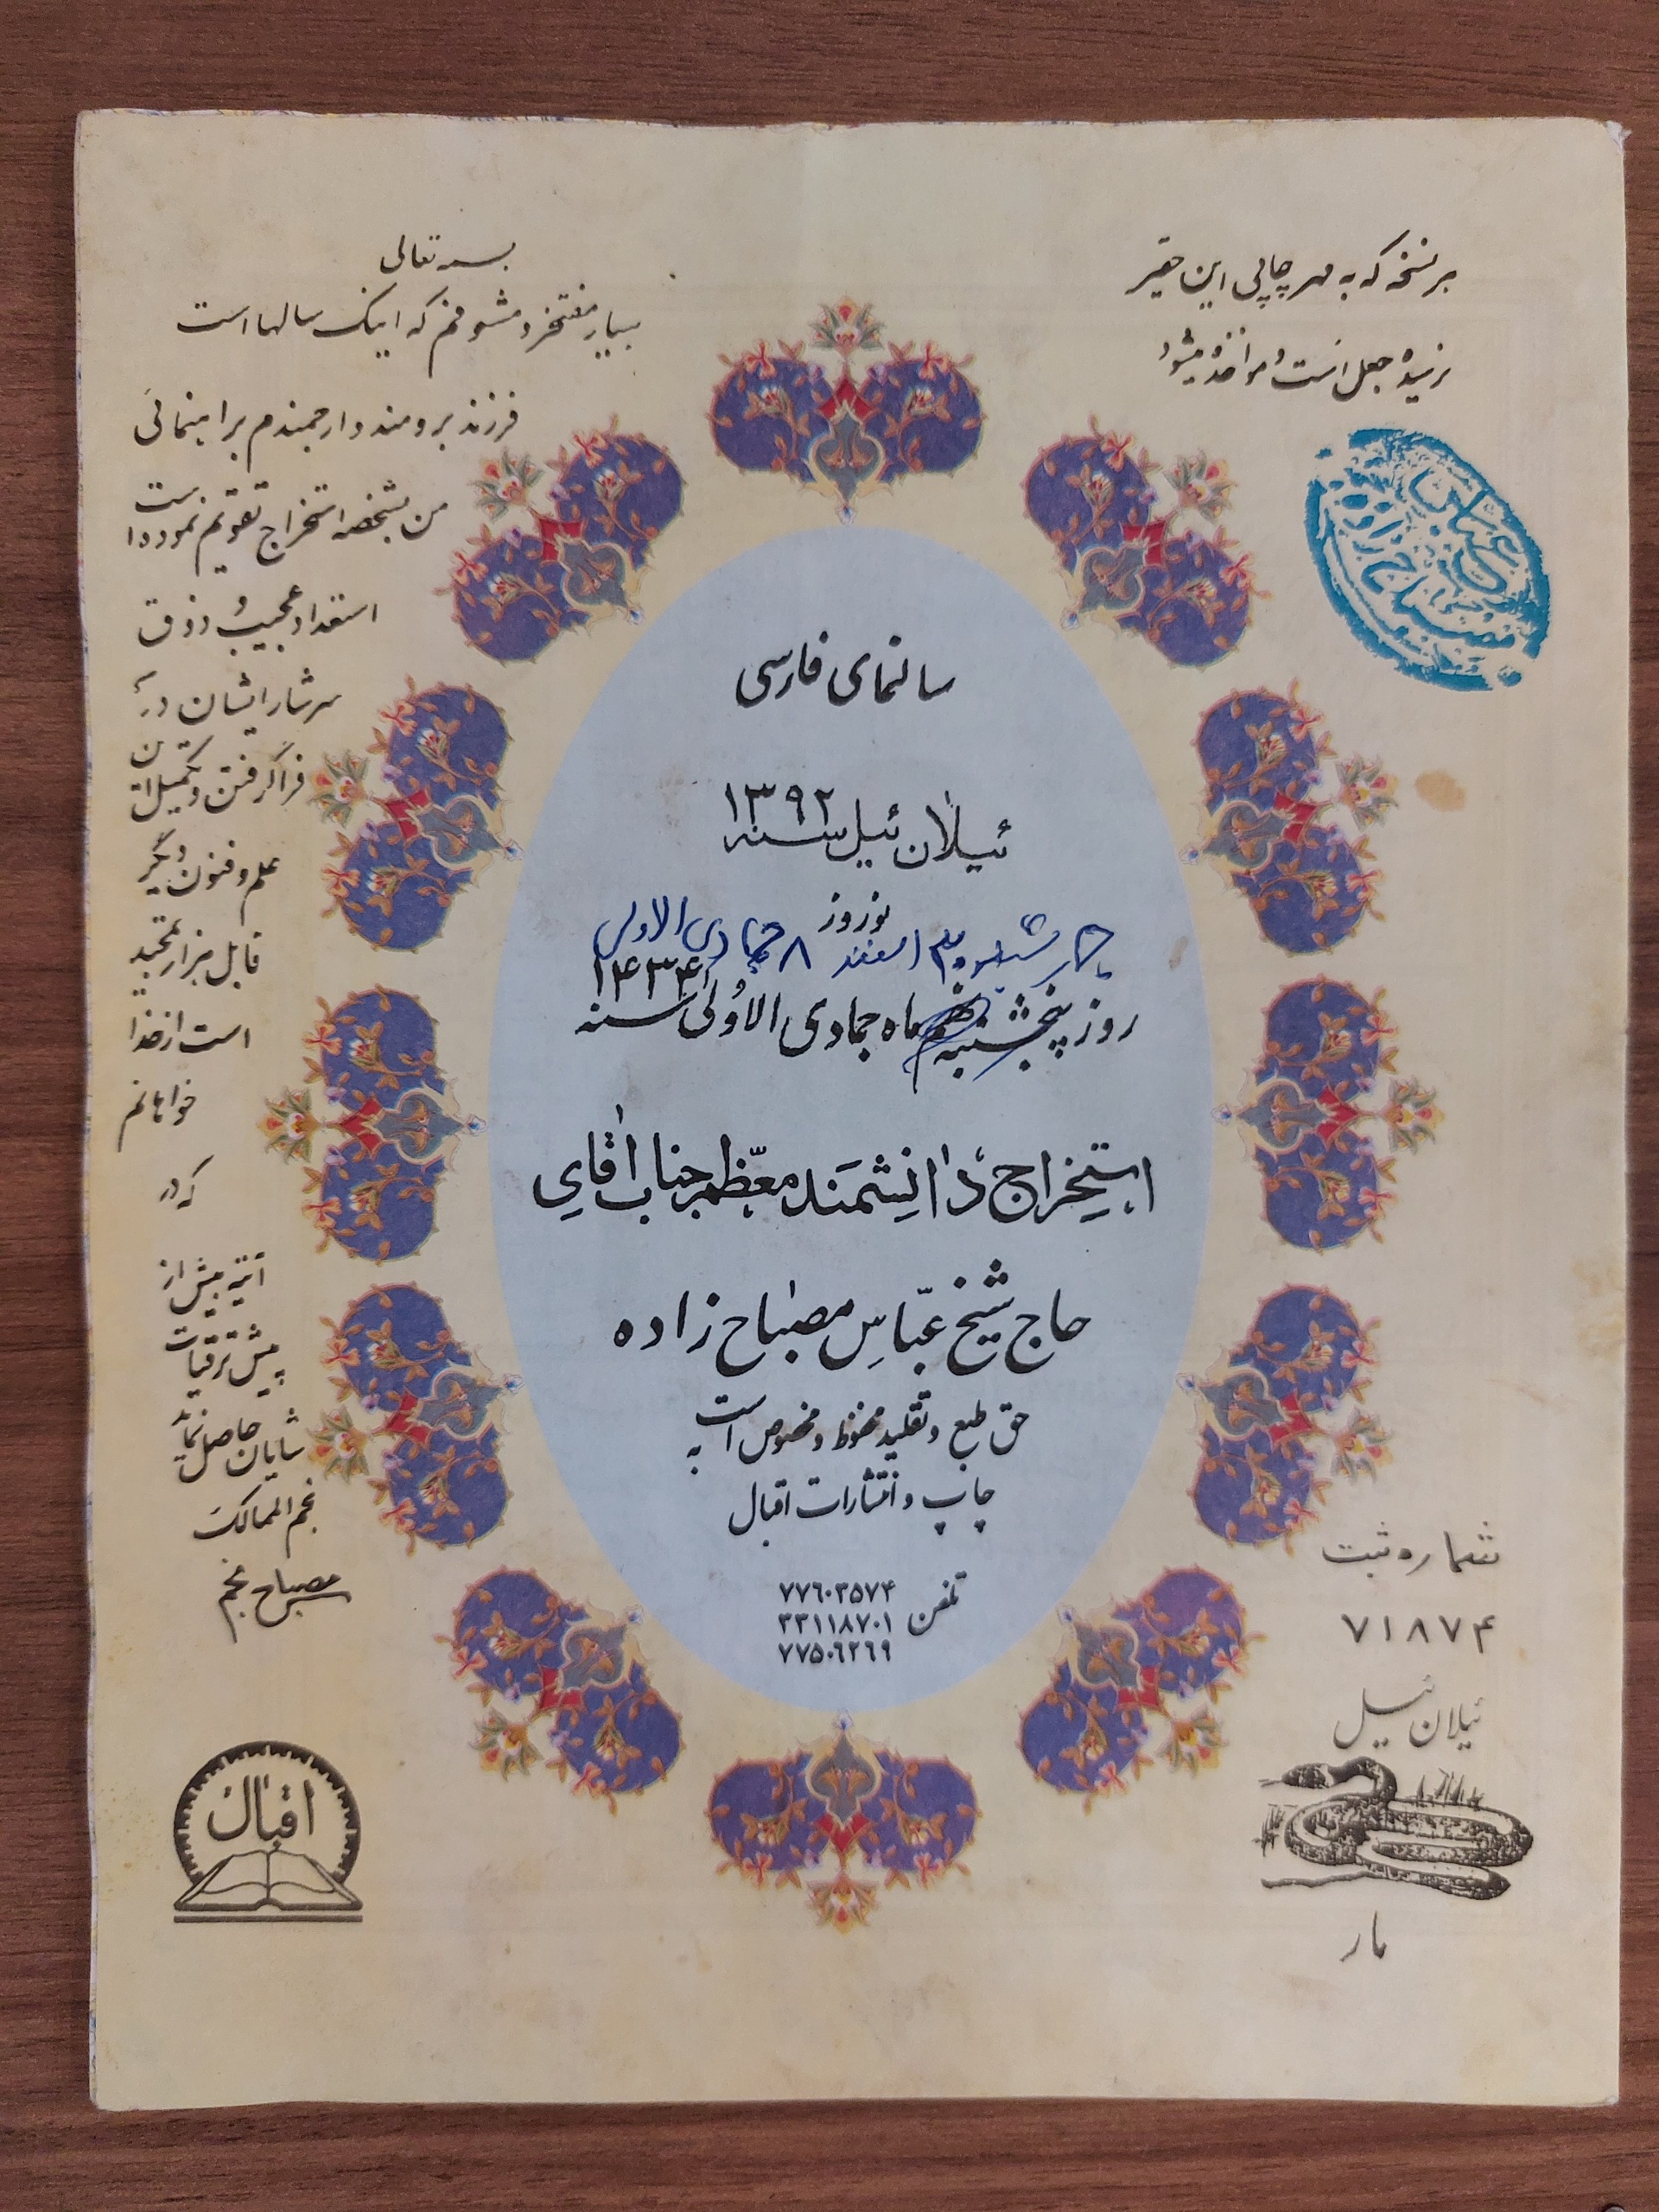 هر نسخه که به مهر چاپی این حقیر
نرسیده جعل است و مؤاخذه میشود
بسمه تعالی
بسیار مفتخر و مشعوفم که اینک سالها است
فرزند برومند و ارجمندم براهنمائی
من بشخصه استخراج تقویم نموده است
استعداد عجیب و ذوق
سرشار ایشان در
فراگرفتن و تکمیل این
علم و فنون دیگر
قابل هزار تمجید
است از خدا
خواهانم
که در
آتیه بیش از
پیش ترقیات
شایان حاصل نماید
نجم الممالک
مصباح منجم
سالنمای فارسی
ئیلان ئیل سنه ۱۳۹۲
نوروز
چهارشنبه ۳۰ اسفند ۸ جمادی الاولی
روز پنجشنبه نهم ماه جمادی الاولی سنه ۱۴۳۴
استخراج دانشمند معظم جناب آقای
حاج شیخ عباس مصباح زاده
حق طبع و تقلید محفوظ و مخصوص است به
چاپ و انتشارات اقبال
تلفن ۷۷۶۰۳۵۷۴
۳۳۱۱۸۷۰۱
۷۷۵۰۶۲۶۹
شماره ثبت
۷۱۸۷۴
ئیلان ئیل
مار
اقبال